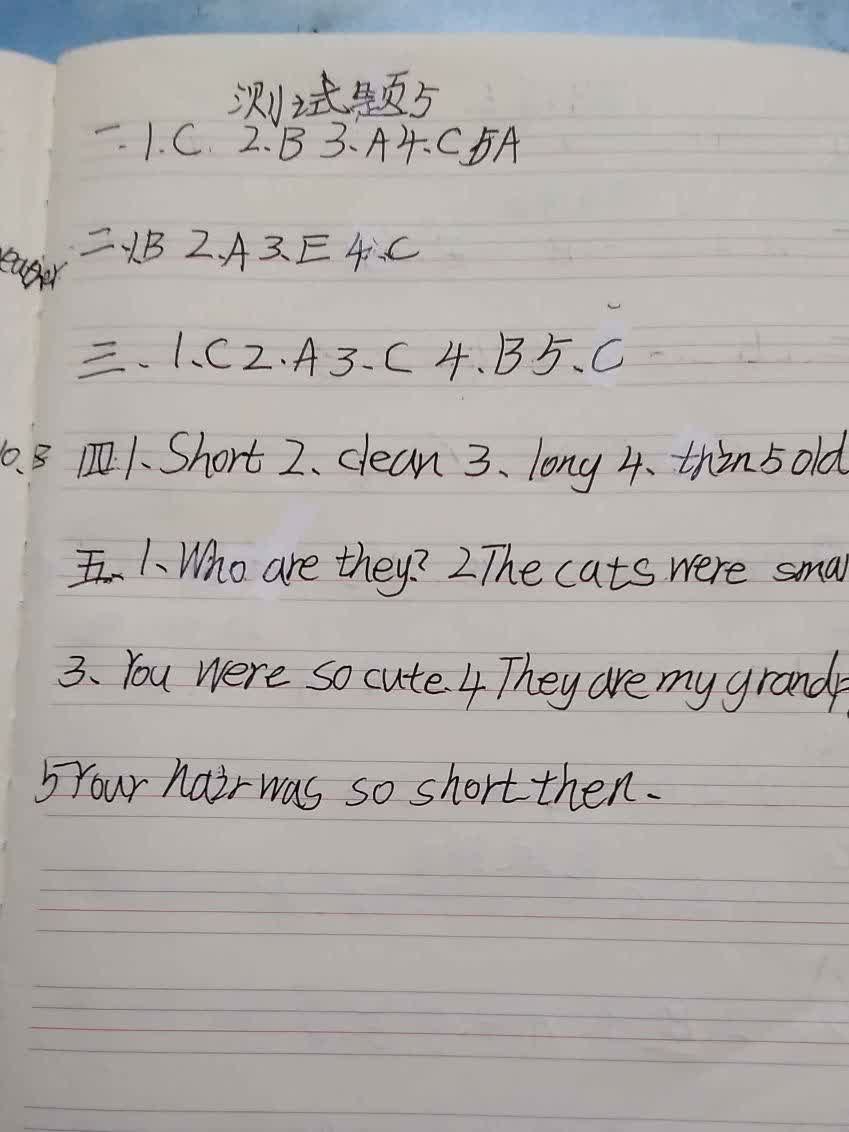 测试题5
一.1.C. 2.B 3.A 4.C 5A
二.1.B 2.A 3.E 4.C
三、1.C 2.A 3.C 4.B 5.C
四1、Short 2、clean 3、long 4、thin 5 old
五、1、Who are they? 2 The cats were smal
3、You were so cute. 4 They are my grandp
5 Your hair was so short then.
10、B